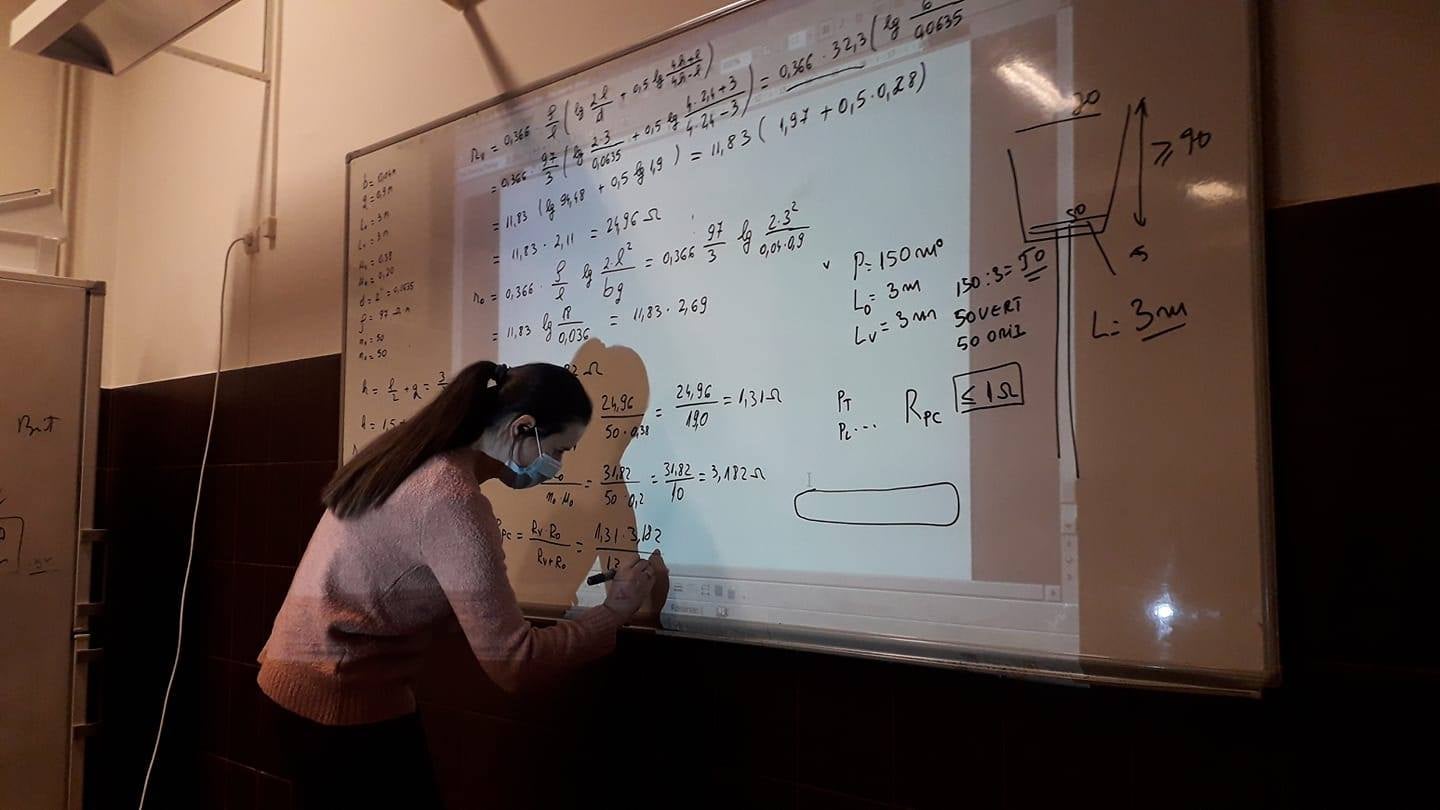 b = 0,04m
q = 0,9m
L₀ = 3m
Lᵥ = 3m
μᵥ = 0,38
μ₀ = 0,20
d = 2" = 0,0635
ρ = 97 Ωm
nᵥ = 50
n₀ = 50
h = l/2 + q = 3/
h = 1,5 +
rᵥ = 0,366 · ρ/l ( lg 2l/d + 0,5 lg 4h+l/4h-l )
= 0,366 · 97/3 ( lg 2·3/0,0635 + 0,5 lg 4·2,4+3/4·24-3 ) = 0,366 · 32,3 ( lg 6/0,0635
= 11,83 ( lg 94,48 + 0,5 lg 1,9 ) = 11,83 ( 1,97 + 0,5·0,28 )
= 11,83 · 2,11 = 24,96 Ω
r₀ = 0,366 · ρ/l lg 2·l²/bq = 0,366 · 97/3 lg 2·3²/0,04·0,9
= 11,83 lg 18/0,036 = 11,83 · 2,69
82 Ω
24,96/50·0,38 = 24,96/19,0 = 1,31 Ω
n₀·μ₀ = 31,82/50·0,2 = 31,82/10 = 3,182 Ω
PC = Rᵥ·R₀/Rᵥ+R₀ = 1,31·3,182/
P = 150 m
L₀ = 3m
Lᵥ = 3m
150 : 3 = 50
50 VERT
50 ORIZ
R_PC ≤ 1 Ω
≥ 90
50
L = 3m